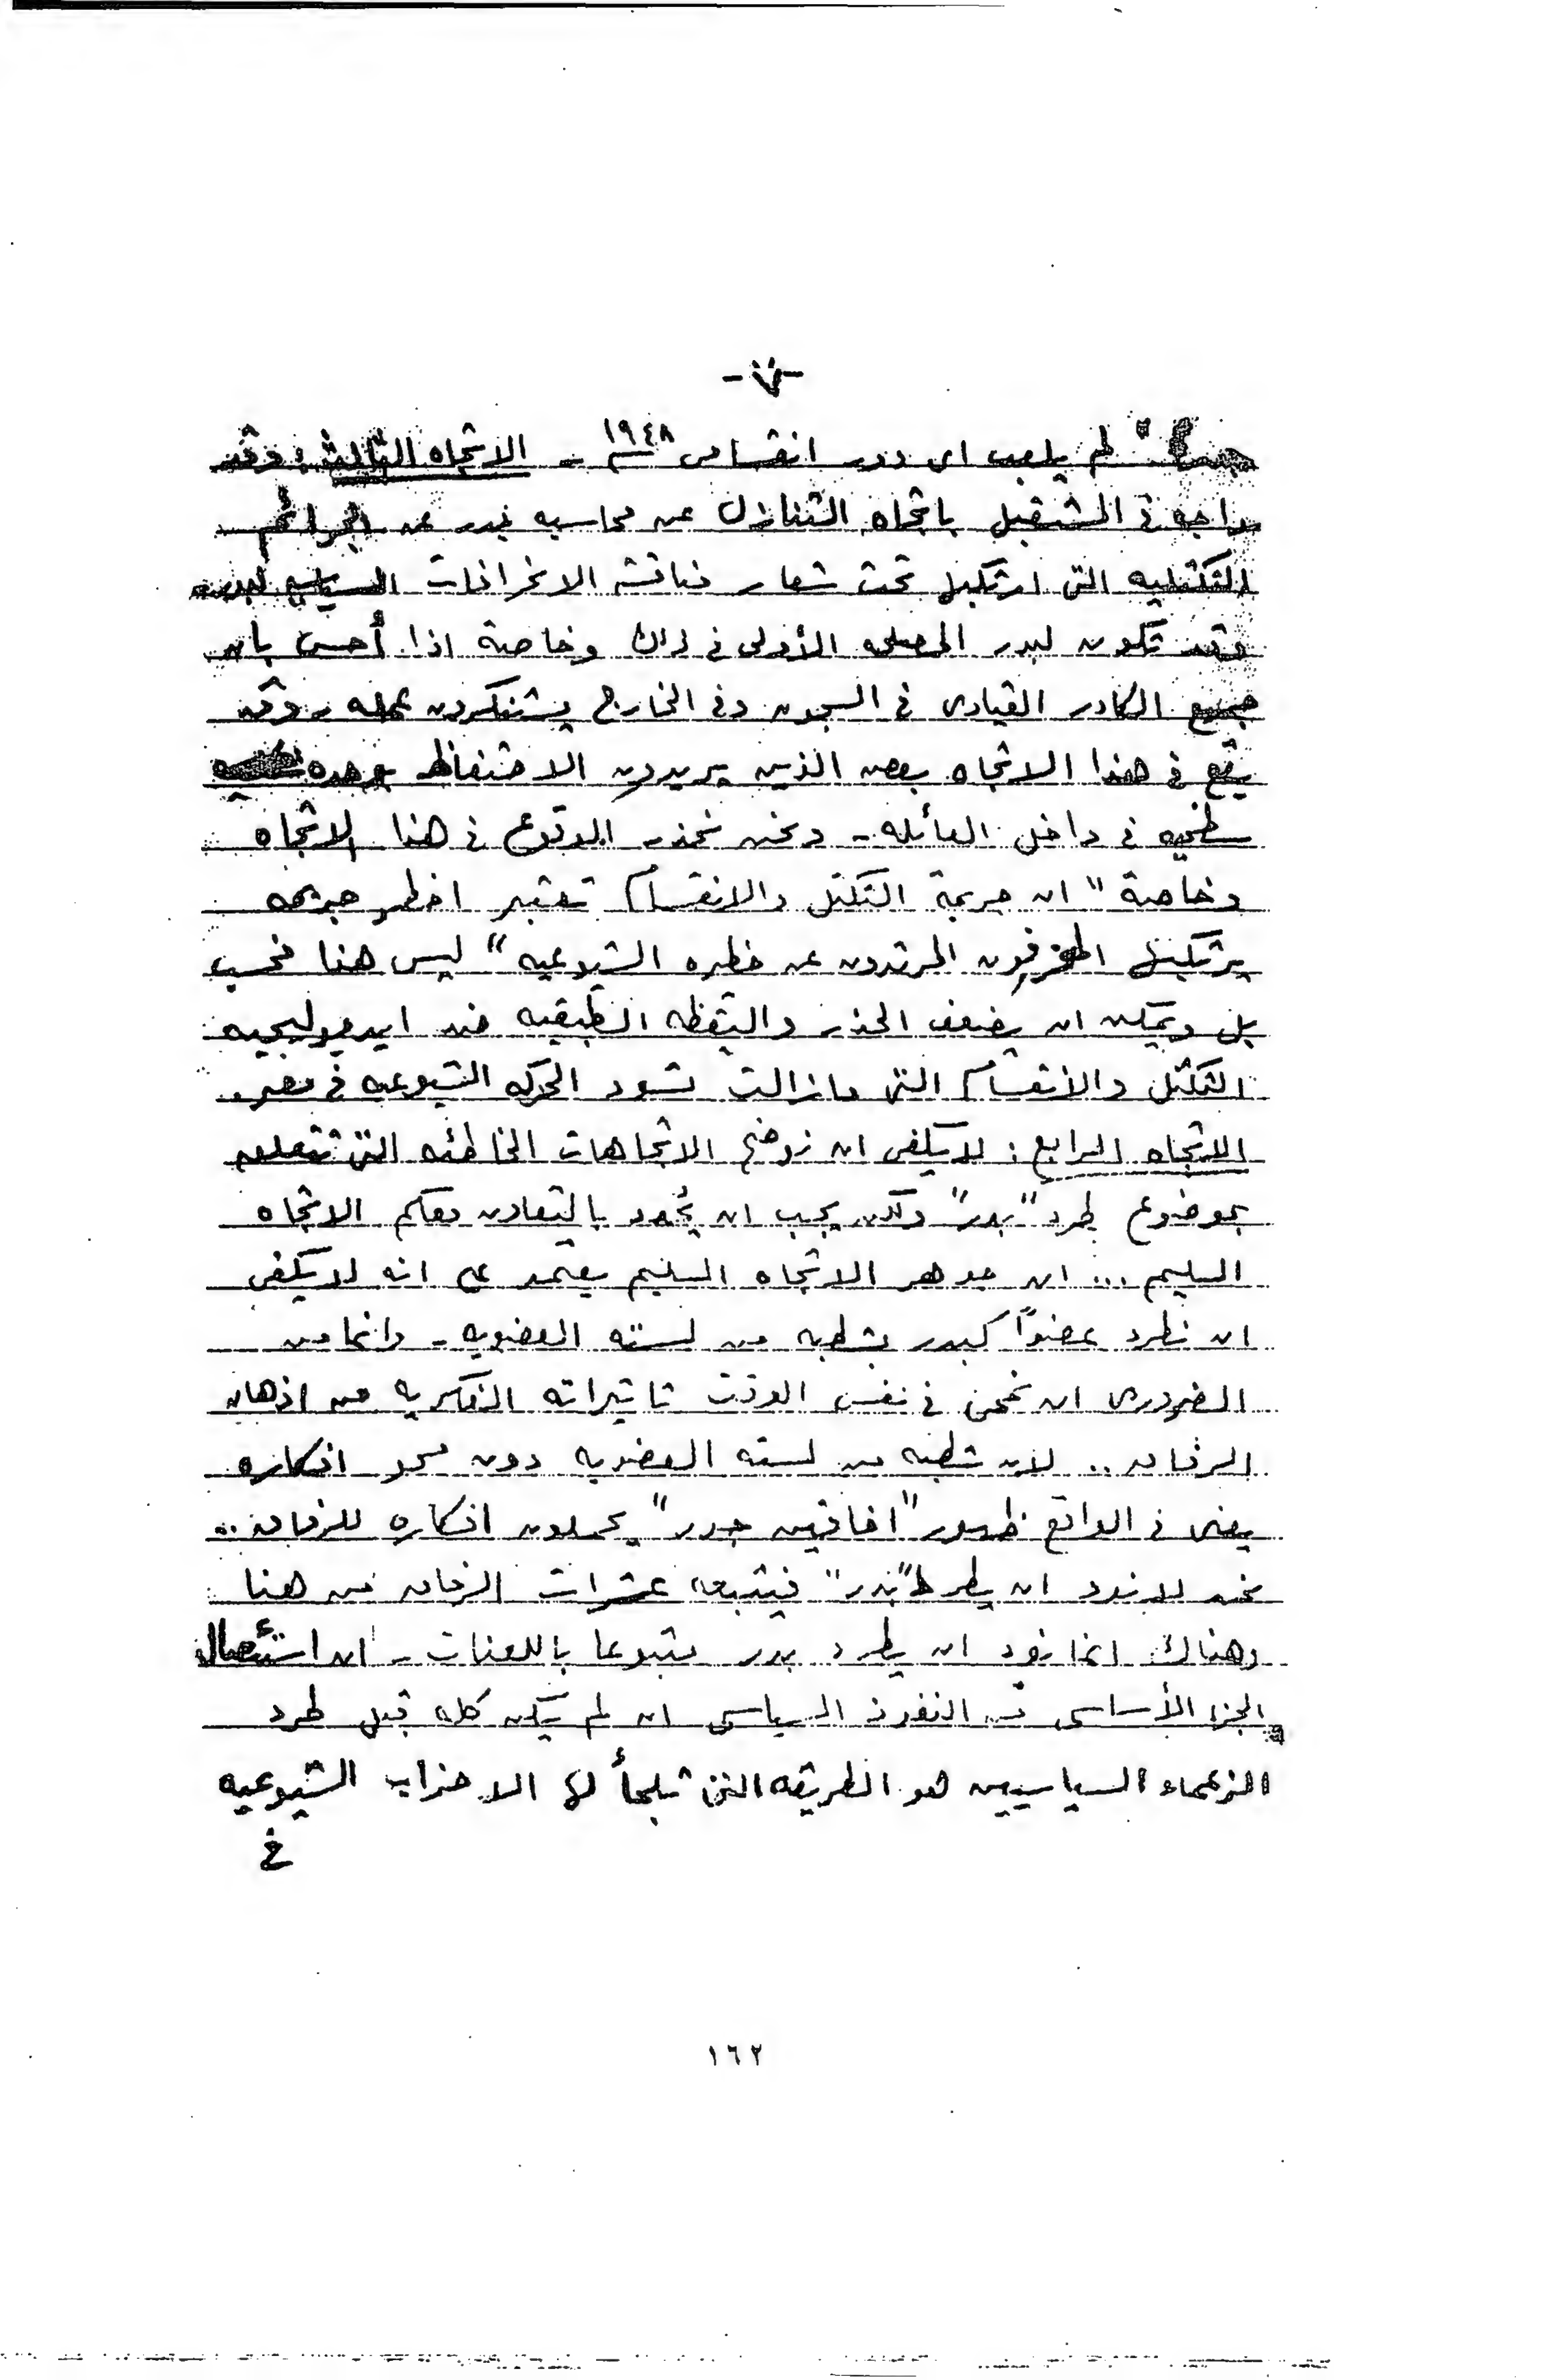 -٧-
لم يلعب اى دور انقسامى ١٩٤٨ - الاتجاه الثالث : وقد
فى المستقبل باتجاه التنازل عن محاسبه بدر عن الجرائم
التكتليه التى ارتكبها تحت شعار مناقشه الانحرافات السياسيه لبدر
وقد تكون لبدر المصلحه الأولى فى ذلك وخاصة اذا أحس بان
جميع الكادر القيادى فى السجون وفى الخارج يستنكرون عمله - وقد
يقع فى هذا الاتجاه بعض الذين يريدون الاحتفاظ بوحده
سطحيه فى داخل العائله - ونحن نحذر الوقوع فى هذا الاتجاه
وخاصة " ان جريمة التكتل والانقسام تعتبر اخطر جريمه
يرتكبها المنحرفون المرتدون عن الشيوعيه " ليس هذا فحسب
بل ويمكن ان يضعف الحذر واليقظه الطبقيه ضد ايديولوجيه
التكتل والانقسام التى مازالت تسود الحركه الشيوعيه فى مصر.
الاتجاه الرابع : لا يكفى ان نوضح الاتجاهات الخاطئه التى تتعلق
بموضوع طرد "بدر" ولكن يجب ان نحدد بالتعاون معكم الاتجاه
السليم ... ان جوهر الاتجاه السليم يعتمد على انه لا يكفى
ان نطرد عضواً كبدر بشطبه من لسته العضويه - وانما من
الضرورى ان نمحى فى نفس الوقت تاثيراته الفكريه من اذهان
الرفاق .. لان شطبه من لسته العضويه دون محو افكاره
يعنى فى الواقع ظهور " جدد" يحملون افكاره للرفاق ..
نحن لا نود ان يطرد "بدر" فيتبعه عشرات الرفاق من هنا
وهناك انما نود ان يطرد بدر متبوعا باللعنات - ان استئصال
الجزء الأساسى من النفوذ السياسى ان لم يكن كله قبل طرد
الزعماء السياسيين هو الطريقه التى تلجأ لها الاحزاب الشيوعيه
فى
١٦٢